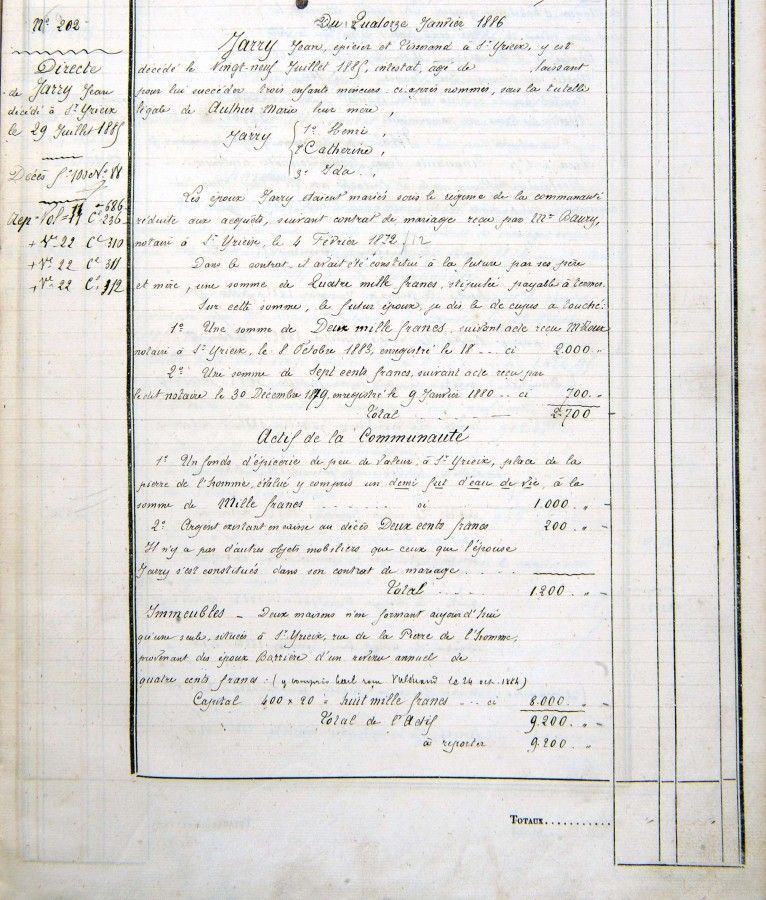 Nº 202
Directe
de Jarry Jean
décédé à St Yrieix
le 29 Juillet 1885
Décès fº 101 Nº 11
- 686
Rep - Vol = 11 Ce 236
+ Vr 22 Ce 310
+ Vr 22 Ce 311
+ Vr 22 Ce 312
Du Quatorze Janvier 1886
Jarry Jean, épicier et à St Yrieix, y est
décédé le Vingt-neuf Juillet 1885, intestat, agé de laissant
pour lui succéder trois enfants mineurs ci-après nommés, sous la tutelle
légale de Authier Marie leur mère,
Jarry { 1º Henri,
2º Catherine,
3º Ida.,
Les époux Jarry étaient mariés sous le régime de la communauté
réduite aux acquêts, suivant contrat de mariage reçu par Me
notaire à St Yrieix, le 4 Février 1872
Dans le contrat il avait été constitué à la future par ses père
et mère, une somme de Quatre mille francs, stipulée payable à termes.
Sur cette somme, le futur époux, je dis le de cujus a touché:
1º Une somme de Deux mille francs, suivant acte reçu
notaire à St Yrieix, le 8 Octobre 1883, enregistré le 18 ... ci 2.000 "
2º Une somme de Sept cents francs, suivant acte reçu par
le dit notaire le 30 Décembre 1879, enregistré le 9 Janvier 1880 .. ci 700. "
Total 2.700
Actif de la Communauté
1º Un fonds d'épicerie de peu de valeur, à St Yrieix, place de la
pierre de l'homme, évalué y compris un demi fût d'eau de vie, à la
somme de Mille francs ........ ci 1.000. "
2º Argent existant en caisse au décès Deux cents francs 200. "
Il n'y a pas d'autres objets mobiliers que ceux que l'épouse
Jarry s'est constitués dans son contrat de mariage.
Total ..... 1.200. "
Immeubles - Deux maisons n'en formant aujourd'hui
qu'une seule, situées à St Yrieix, rue de la Pierre de l'homme,
provenant des époux Barrière d'un revenu annuel de
quatre cents francs. (y compris bail le 24 oct. 1884)
Capital 400 x 20 = huit mille francs ... ci 8.000. "
Total de l'Actif 9.200. "
à reporter 9.200. "
TOTAUX...........